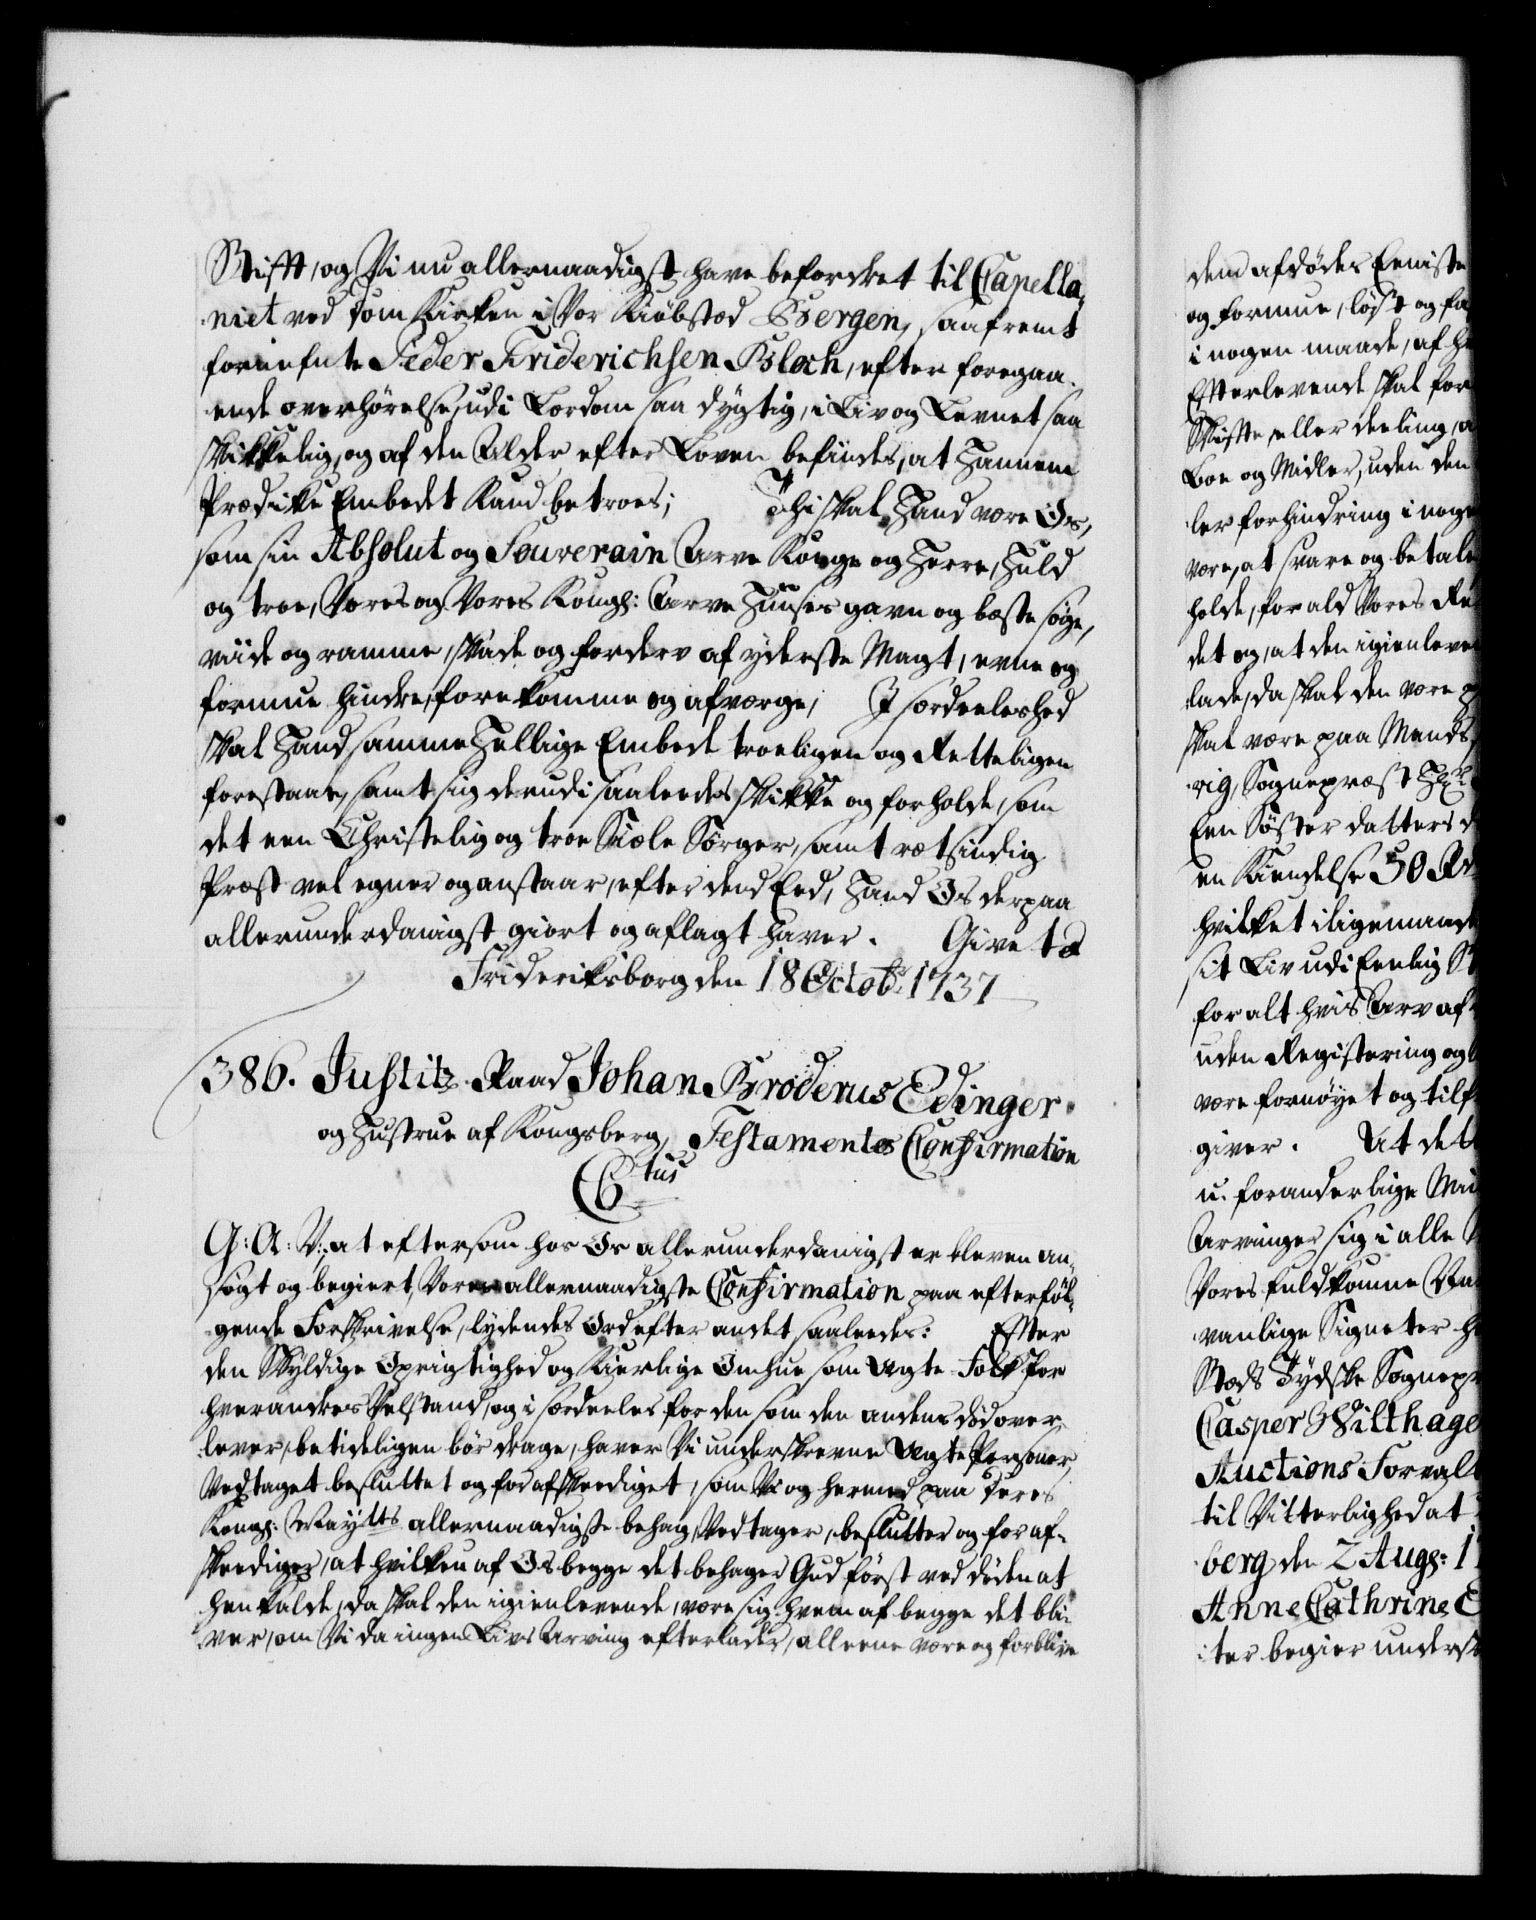 Stifft, og Vi nu allernaadigst have befordret til Capella,
niet ved Dom Kirken i Vor Kiöbsted Bergen, saafremt
foriefnte Peder Friderichsen Bloch, efter foregaa-
ende overhørelse, udi Lærdom saa dygtig, i Liv og Levnet saa
skikkelig, og af den Alder efter Loven befindes, at Hannem
Prædike Embedet Kand betroes; Thi skal Hand være Os,
som sin Absolut og Souverain Arve Konge og Herre, Huld
og troe, Vores og Vores Kongl: Arve Huuses gavn og beste søge,
viide og ramme, skade og forderv af yderste Magt, evne og
formue hindre, forekomme og afværge, I særdeeleshed
skal Hand samme Hellige Embede troeligen og Retteligen
forestaae, samt sig derudi saaledes skikke og forholde, som
det een Christelig og troe Siæle Sørger, samt retsindig
Præst vel egner og anstaar, efter dend Eed, Hand Os derpaa
allerunderdanigst giort og aflagt haver. Givet &
Frideriksborg den 18 Octobr: 1737
386. Justitz-Raad Johan Broderus Edinger
og Hustrue af Kongsberg, Testamentes Confirmation
C6tus
G: A: V:, at eftersom hos Os allerunderdanigst er bleven an-
søgt og begiert, Vores allernaadigste Confirmation paa efterföl-
gende Forskrivelse, lydendes Ord efter andet saaledes: Efter
den Skyldige Oprigtighed og Kierlige Omhue som Ægte-Folk for
hverandres Velstand, og i særdeeles for den som den andens død over-
lever, betideligen bör drage, haver Vi underskrevne Ægte Personer,
Vedtaget besluttet og forafskeediget, som Vi og hermed paa Deres
Kongl: Maytts allernaadigste behag, Vedtager, beslutter og foraf-
skeediger, at hvilken af Os begge det behager Gud först ved döden at
henkalde, da skal den igienlevende, være sig hvem af begge det bli-
ver, om Vi da ingen Livs Arving efterlader, alleene være og forblive
dend afdödes Eeniste
og formue, löst og fa
i nogen maade, af h
Efterlevende skal for
Skifte eller deeling, a
Boe og Midler, uden den
ler forhindring i noge
være, at svare og betale
holde, for ald Vores Re
det og, at den igienleve
lade, da skal den være p
skal være paa Mands
rig, Sognepræst Hr:
Een Söster datters d
en Kiendelse 50 Rd
hvilket iligemaade
sit Liv udi Eenlig St
for alt hvis Arv af
uden Registering og
være fornöyet og tilf
giver. At det
u-foranderlige Mai
Arvinger sig i alle
Vores fuldkomne Na
vanlige Signeter h
Stæds Tydske Sognepr
Casper Wilthage
Auctions Forvalt
til Vitterlighed at
berg den 2 Aug: 1
Anne Cathrine E
ter begier underst